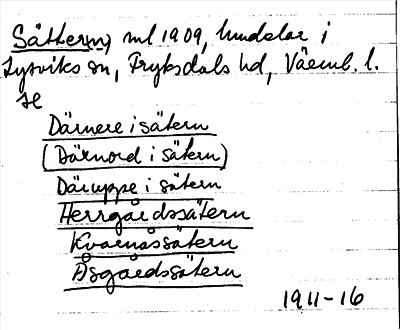 Sättern, ml 1909, hmdelar i
Lysviks sn, Fryksdals hd, Värml. l.
se
Därnere i sätern
(Därnord i sätern)
Däruppe i sätern
Herrgårdssätern
Kvarnåssätern
Åsgårdssätern
1911-16